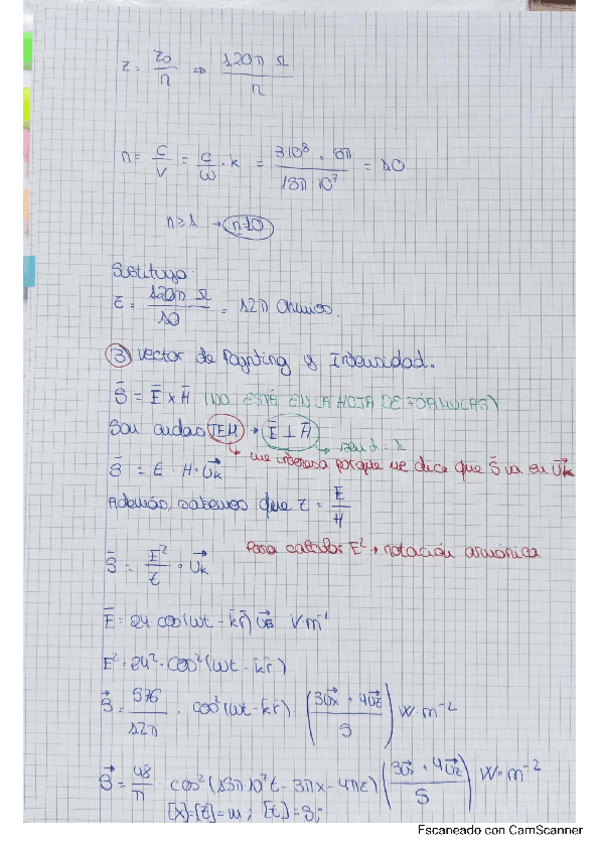 z = z₀/n ⇒ 120π Ω/n
n = c/v = c/ω · k = 3·10⁸ · 5π/15π·10⁷ = 10
n ≥ 1 → n=10
Sustituyo:
z = 120π Ω/10 = 12π Ohmios.
③ Vector de Poynting e Intensidad.
S̄ = Ē x H̄ (NO ESTÁ EN LA HOJA DE FÓRMULAS)
Son ondas TEM → Ē ⊥ H̄
→ me interesa porque me dice que S̄ va en u⃗k
S̄ = E · H · u⃗k
Además, sabemos que z = E/H
S̄ = E²/z · u⃗k Para calcular E² → notación armónica
Ē = 24 · cos(ωt - k̄r̄) V m⁻¹
E² = 24² · cos²(ωt - k̄r̄)
S⃗ = 576/12π · cos²(ωt - k̄r̄) · (3u⃗x + 4u⃗z/5) W·m⁻²
S⃗ = 48/π cos²(15π10⁷t - 3πx - 4πz) (3u⃗x + 4u⃗z/5) W·m⁻²
[x]=[z]=m ; [t]=s;
Escaneado con CamScanner